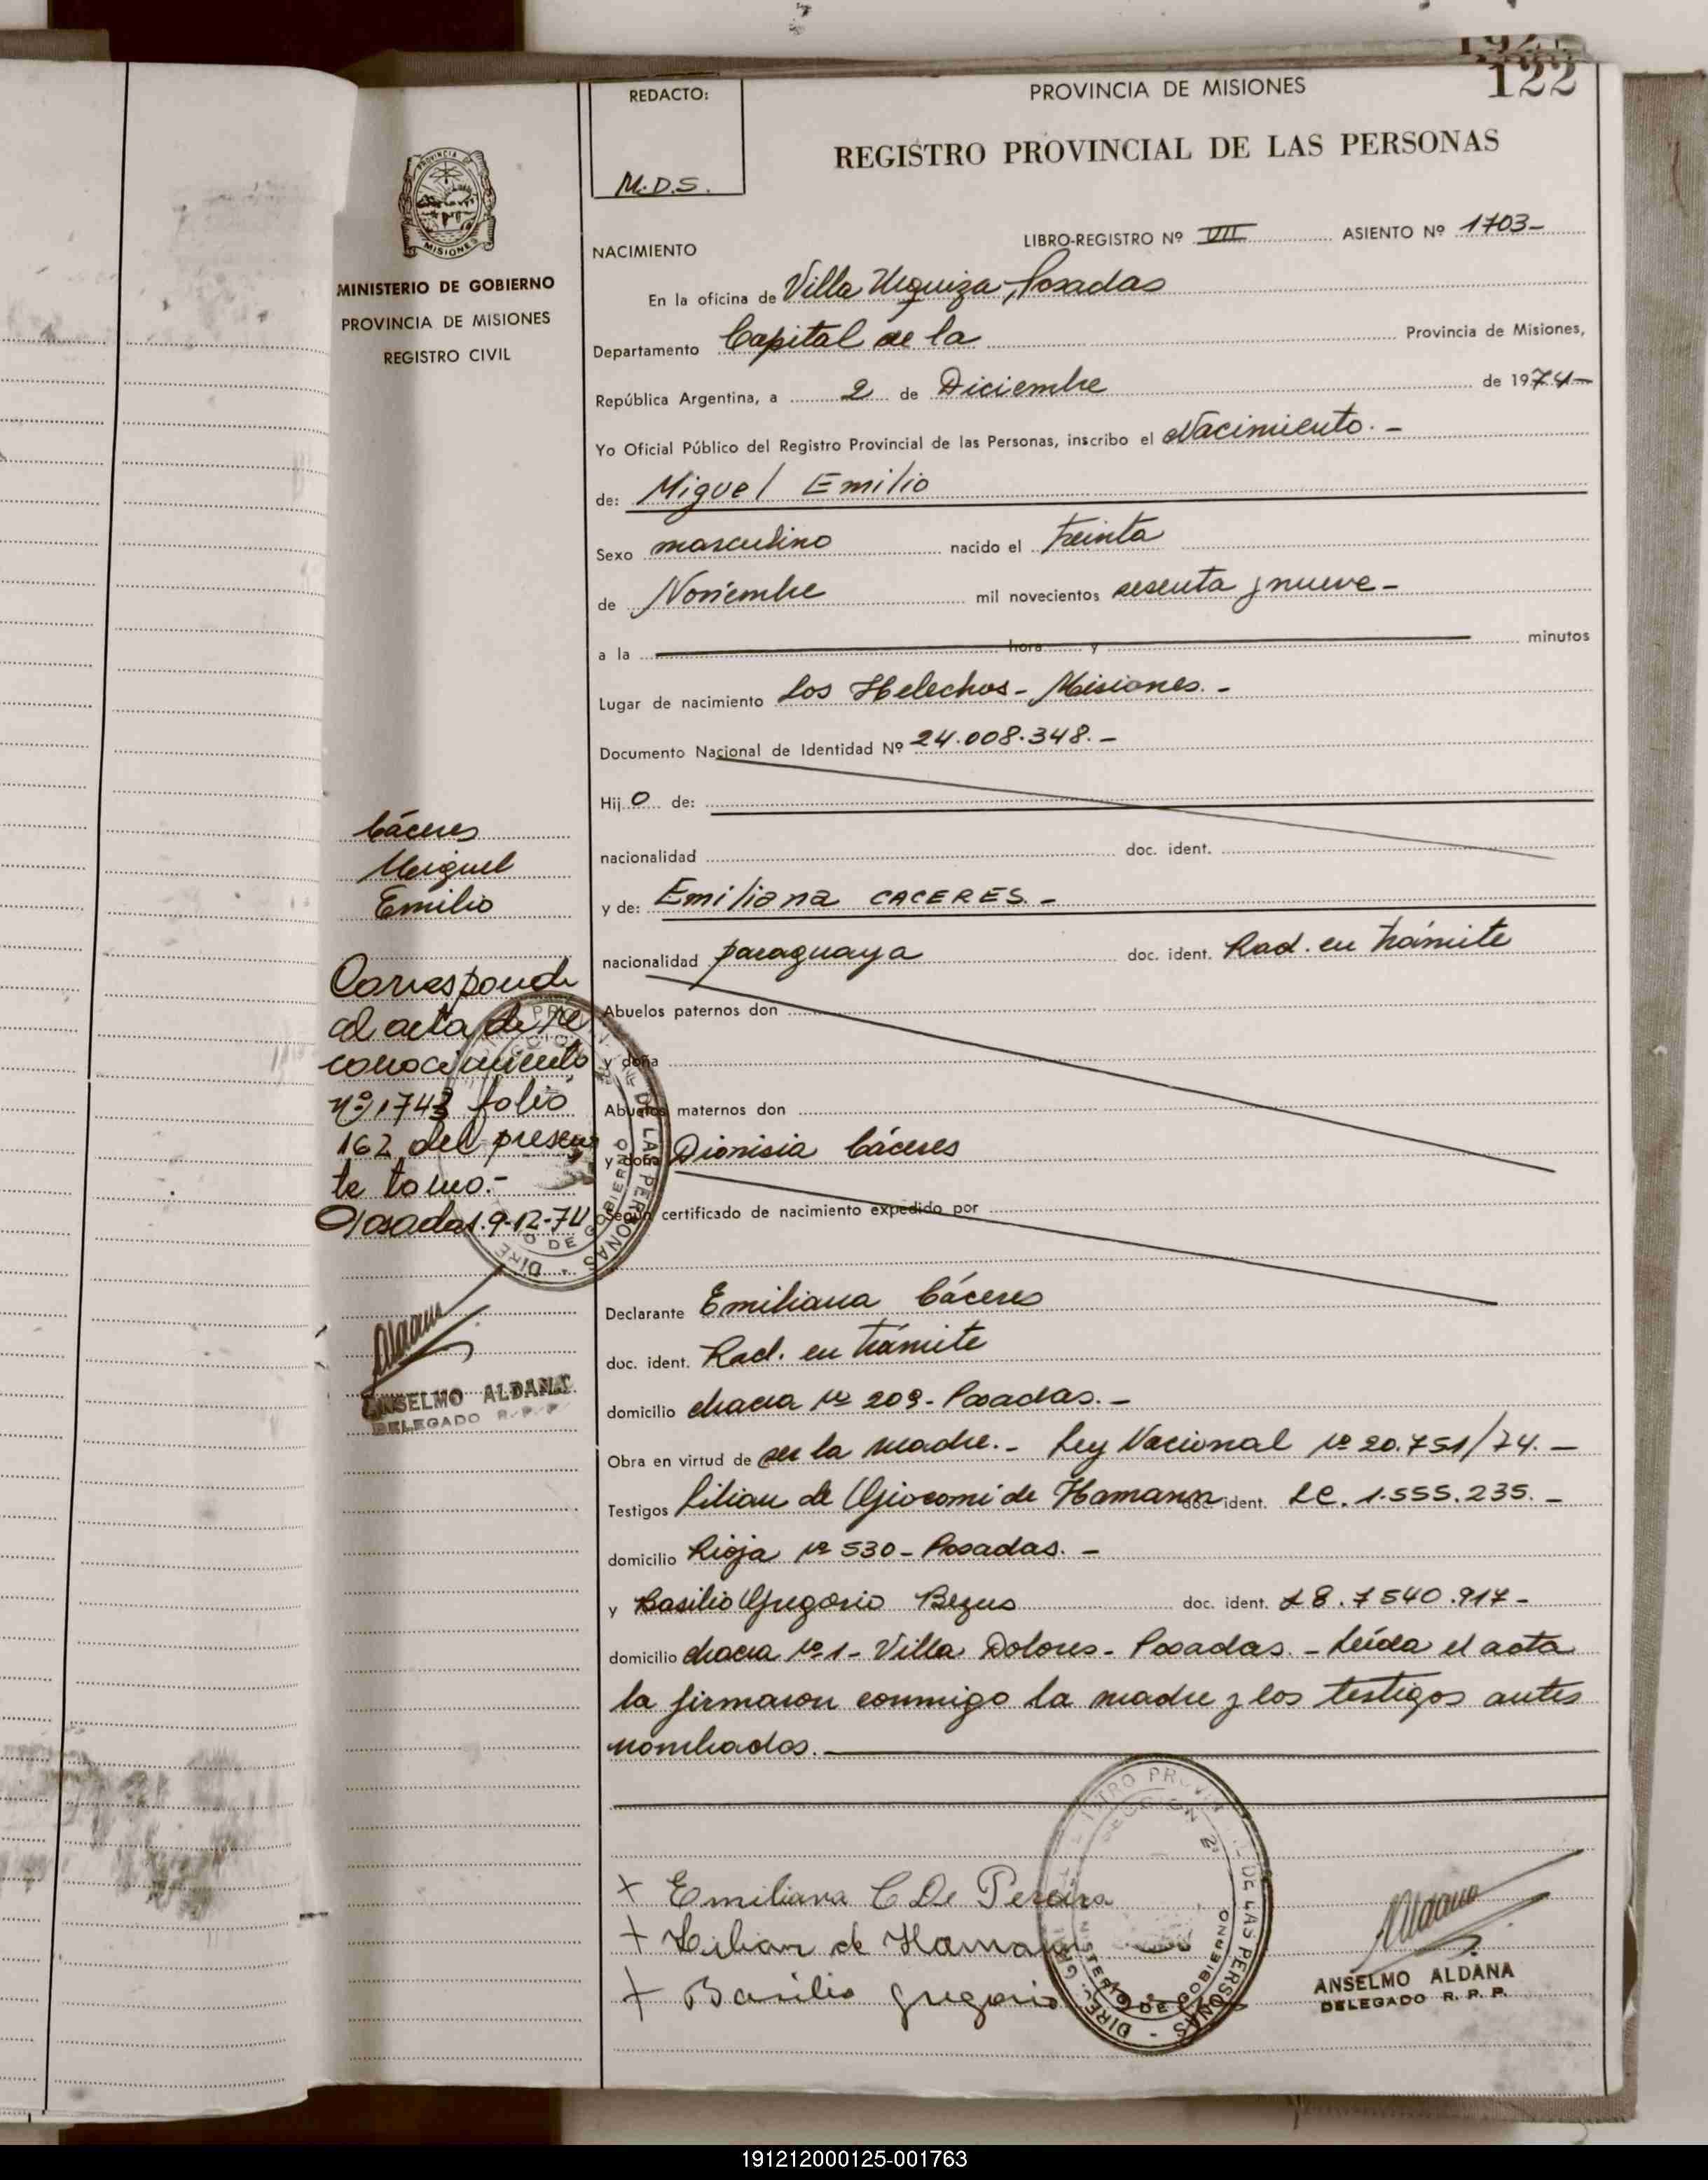 122
REDACTO:
M.D.S.
PROVINCIA DE MISIONES
REGISTRO PROVINCIAL DE LAS PERSONAS
PROVINCIA DE
MISIONES
MINISTERIO DE GOBIERNO
PROVINCIA DE MISIONES
REGISTRO CIVIL
NACIMIENTO
LIBRO-REGISTRO Nº VII ASIENTO Nº 1703-
En la oficina de Villa Urquiza, Posadas
Departamento Capital de la Provincia de Misiones,
República Argentina, a 2 de Diciembre de 1974-
Yo Oficial Público del Registro Provincial de las Personas, inscribo el Nacimiento.-
de: Miguel Emilio
Sexo masculino nacido el treinta
de Noviembre mil novecientos sesenta y nueve-
a la hora y minutos
Lugar de nacimiento Los Helechos- Misiones.-
Documento Nacional de Identidad Nº 24.008.348.-
Hijo de:
nacionalidad doc. ident.
y de: Emiliana CACERES.-
nacionalidad paraguaya doc. ident. Rad. en trámite
Abuelos paternos don
y doña
Abuelos maternos don
y doña Dionisia Cáceres
Según certificado de nacimiento expedido por
Declarante Emiliana Cáceres
doc. ident. Rad. en trámite
domicilio chacra Nº 209- Posadas.-
Obra en virtud de ser la madre.- Ley Nacional Nº 20.751/74.-
Testigos Lilian de Giocomi de Hamann doc. ident. LC. 1.555.235.-
domicilio Rioja Nº 530- Posadas.-
y Basilio Gregorio Bezus doc. ident. 7540.917-
domicilio chacra Nº 1- Villa Dolores- Posadas.- Leída el acta
la firmaron conmigo la madre y los testigos antes
nombrados.
Cáceres
Miguel
Emilio
Corresponde
al acta de re
conocimiento
nº 1743 folio
162 del presen
te tomo.-
Posadas. 9-12-74
Aldana
ANSELMO ALDANA
DELEGADO R. P. P.
+ Emiliana C De Pereira
+ Lilian de Hamann
+ Basilio Gregorio
Aldana
ANSELMO ALDANA
DELEGADO R. P. P.
DE LAS PERSONAS
DE GOBIERNO
191212000125-001763